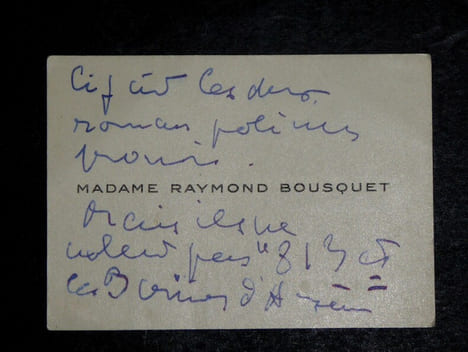 Ci joint les deux
romans policiers
promis.
MADAME RAYMOND BOUSQUET
Mais ils ne
valent pas "813 et
les B d'Arsène